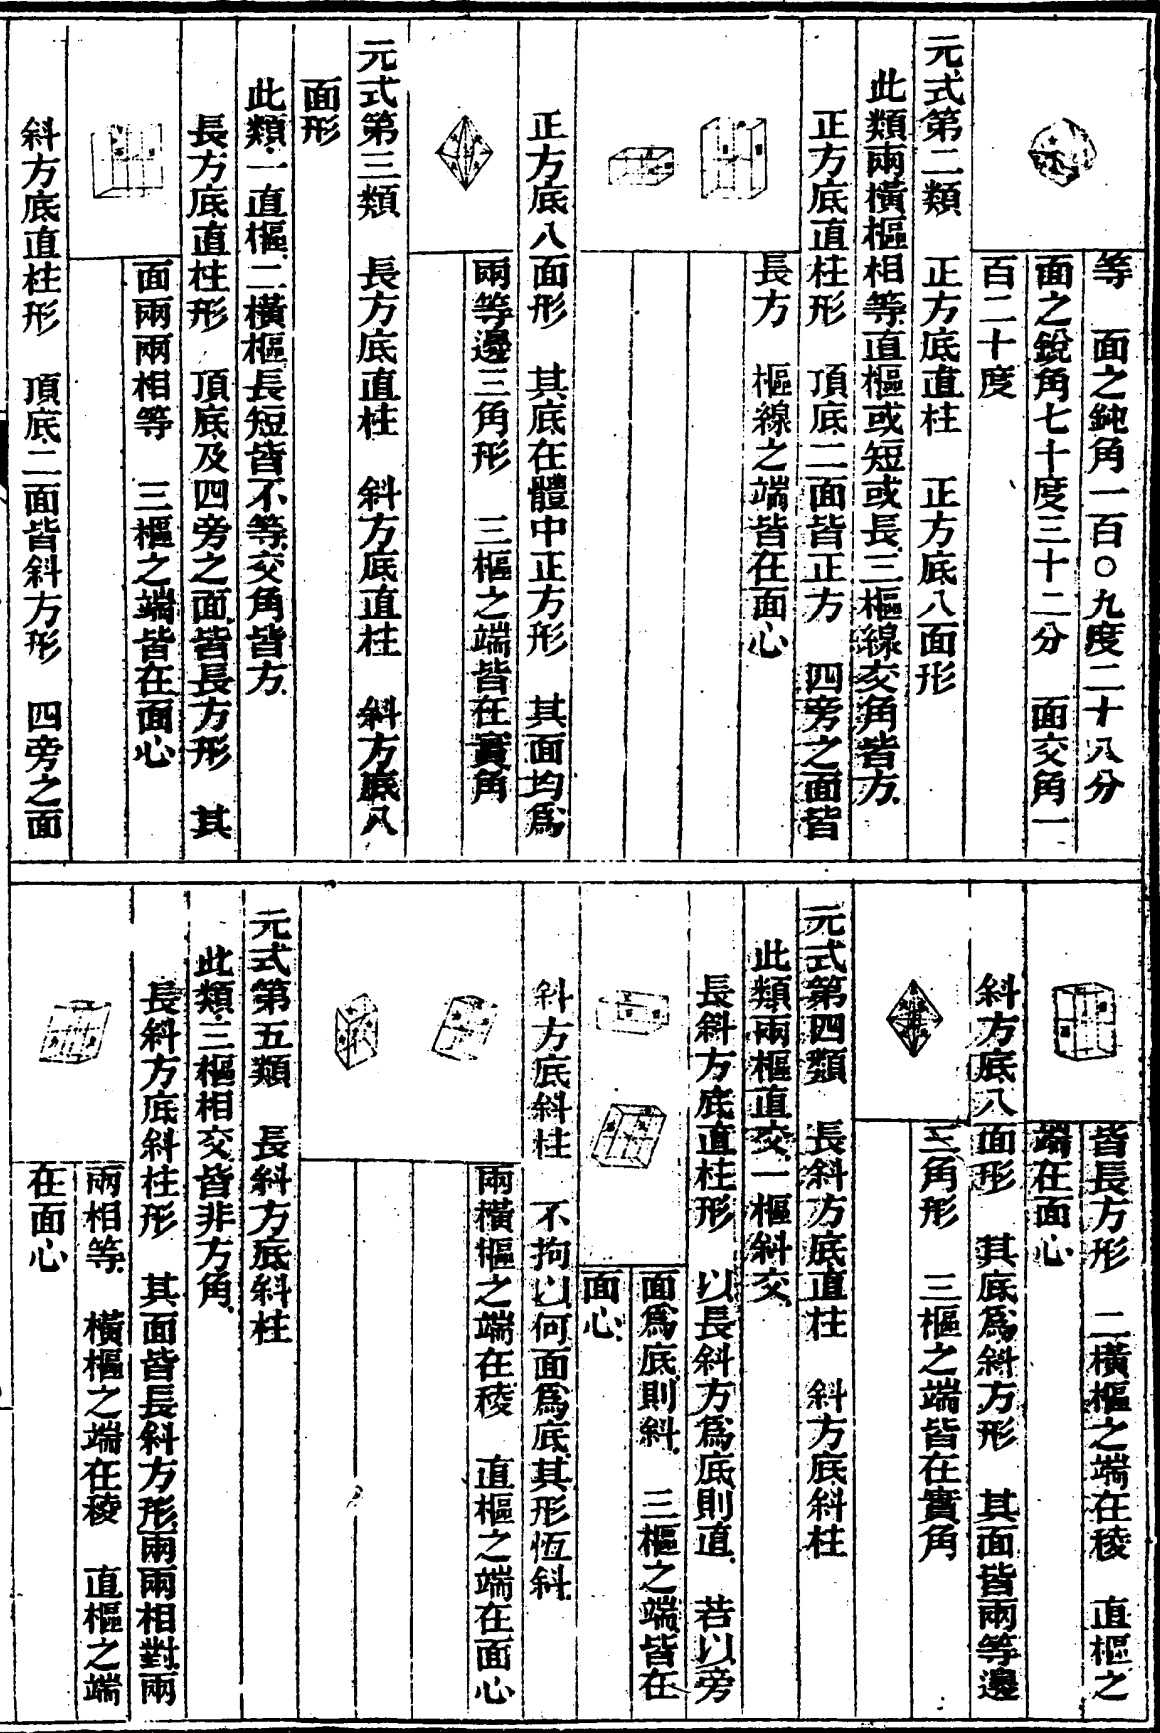 等　面之鈍角一百〇九度二十八分
面之銳角七十度三十二分　面交角一
百二十度
元式第二類　正方底直柱　正方底八面形
此類兩橫樞相等直樞或短或長三樞線交角皆方
正方底直柱形　頂底二面皆正方　四旁之面皆
長方　樞線之端皆在面心
正方底八面形　其底在體中正方形　其面均爲
兩等邊三角形　三樞之端皆在實角
元式第三類　長方底直柱　斜方底直柱　斜方底八
面形
此類一直樞二橫樞長短皆不等交角皆方
長方底直柱形　頂底及四旁之面皆長方形　其
面兩兩相等　三樞之端皆在面心
斜方底直柱形　頂底二面皆斜方形　四旁之面
皆長方形　二橫樞之端在稜　直樞之
端在面心
斜方底八面形　其底爲斜方形　其面皆兩等邊
三角形　三樞之端皆在實角
元式第四類　長斜方底直柱　斜方底斜柱
此類兩樞直交一樞斜交
長斜方底直柱形　以長斜方爲底則直　若以旁
面爲底則斜　三樞之端皆在
面心
斜方底斜柱　不拘以何面爲底其形恆斜
兩橫樞之端在稜　直樞之端在面心
元式第五類　長斜方底斜柱
此類三樞相交皆非方角
長斜方底斜柱形　其面皆長斜方形兩兩相對兩
兩相等　橫樞之端在稜　直樞之端
在面心